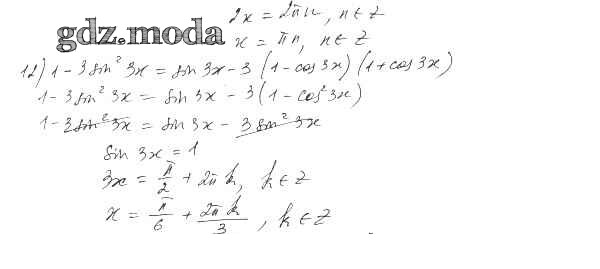 2x = 2πn, n ∈ Z
gdz.moda
x = πn, n ∈ Z
12) 1 - 3 sin² 3x = sin 3x - 3 (1 - cos 3x) (1 + cos 3x)
1 - 3 sin² 3x = sin 3x - 3 (1 - cos² 3x)
1 - 3 sin² 3x = sin 3x - 3 sin² 3x
sin 3x = 1
3x = π/2 + 2πk, k ∈ Z
x = π/6 + 2πk/3, k ∈ Z